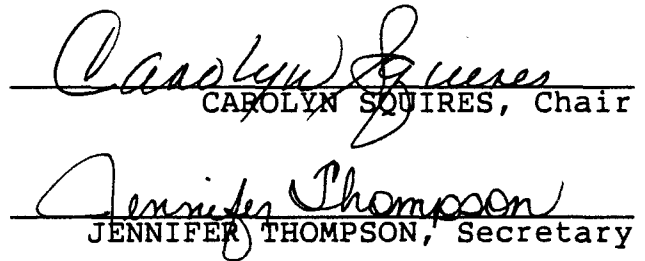 Carolyn Squires
CAROLYN SQUIRES, Chair
Jennifer Thompson
JENNIFER THOMPSON, Secretary